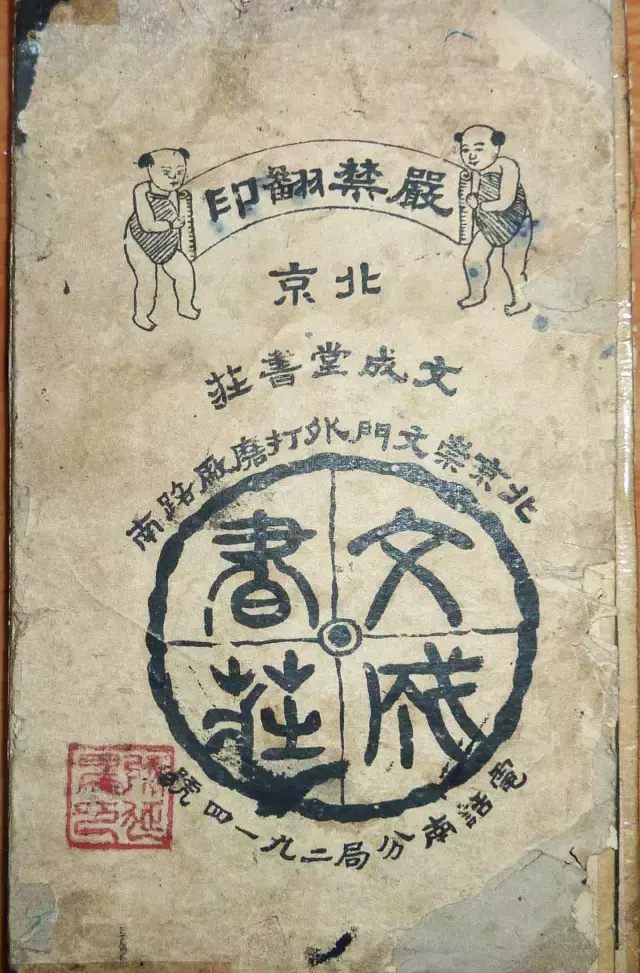 嚴禁翻印
北京
文成堂書莊
北京崇文門外打磨厰路南
文成書莊
電話南分局二九一四號